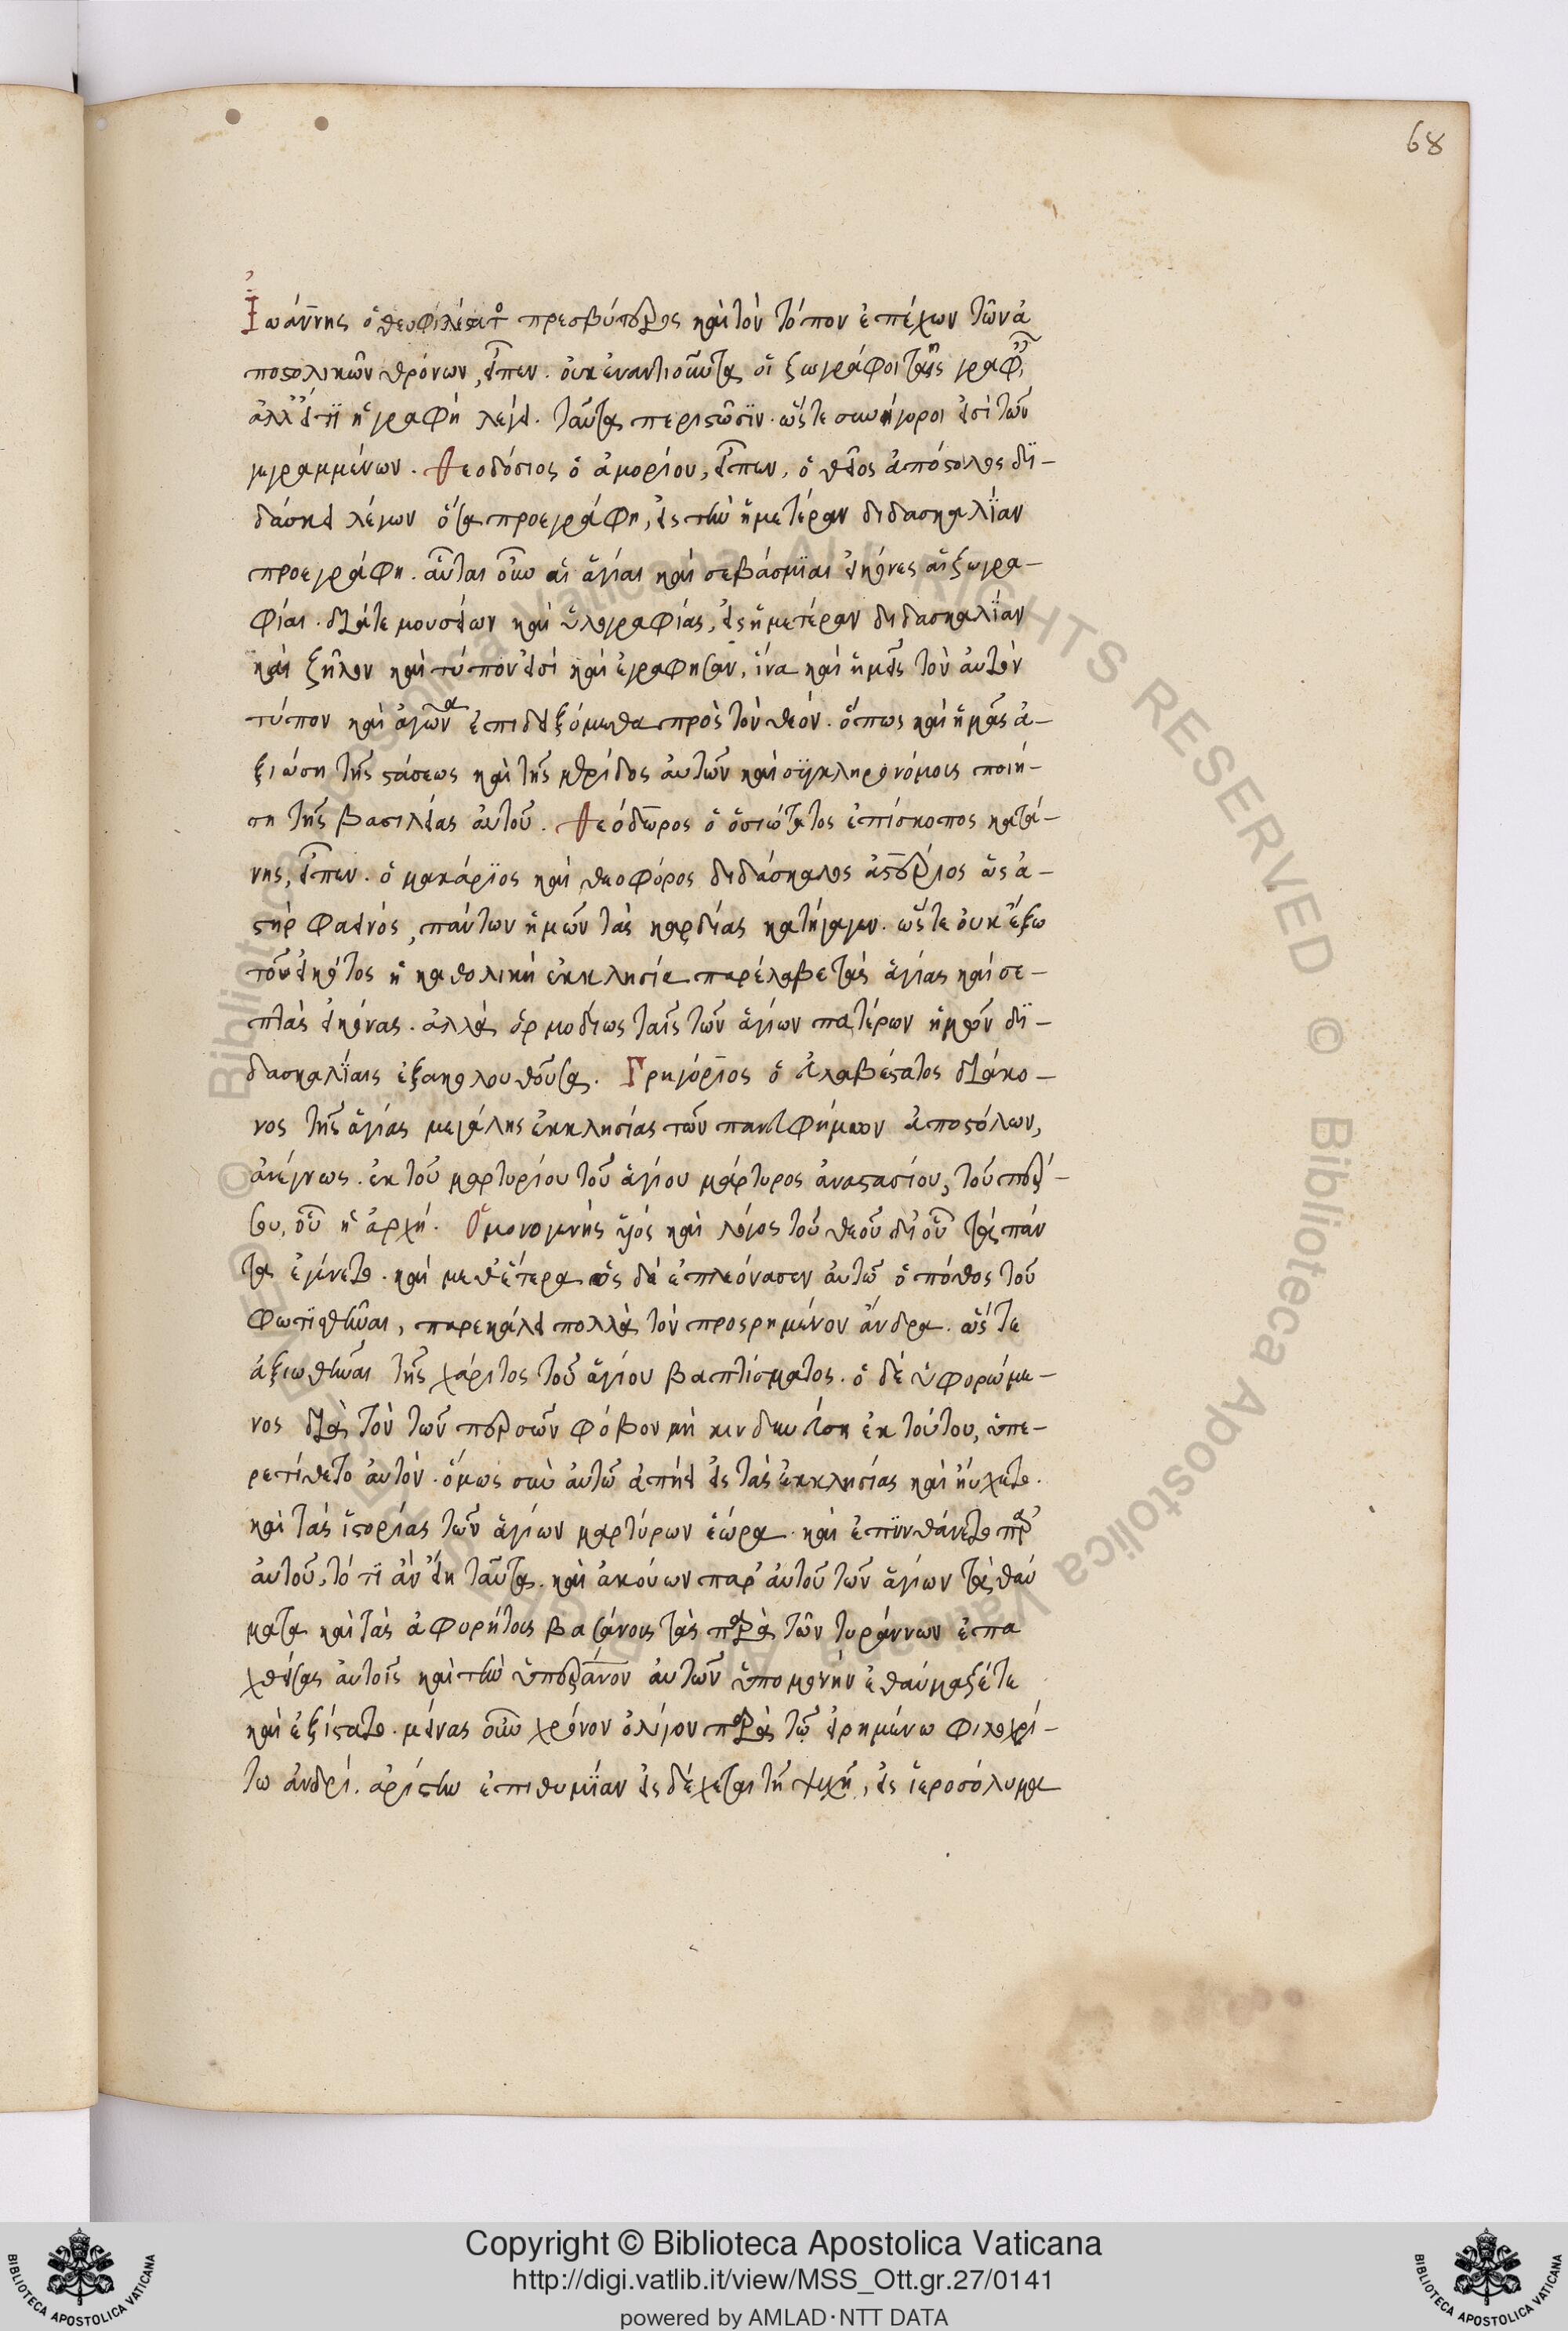 68
Ἰωάννης ὁ θεοφιλέστατος πρεσβύτερος καὶ τὸν τόπον ἐπέχων τῶν ἀ
ποστολικῶν θρόνων, εἶπεν. οὐκ ἐναντιοῦνται οἱ ζωγράφοι ταῖς γραφαῖς
ἀλλ' εἴ τι ἡ γραφὴ λέγει. ταῦτα περιστῶσιν. ὥστε συνήγοροι εἰσὶ τῶν
γεγραμμένων. Θεοδόσιος ὁ ἀμορίου, εἶπεν, ὁ θεῖος ἀπόστολος δι-
δάσκει λέγων ὅσα προεγράφη, εἰς τὴν ἡμετέραν διδασκαλίαν
προεγράφη. αὗται οὖν αἱ ἅγιαι καὶ σεβάσμιαι εἰκόνες αἱ ζωγρα-
φίαι. διά τε μουσείων καὶ ὑλογραφίας, εἰς ἡμετέραν διδασκαλίαν
καὶ ζῆλον καὶ τύπον εἰσὶ καὶ ἐγράφησαν, ἵνα καὶ ἡμεῖς τὸν αὐτὸν
τύπον καὶ ἀγῶνα ἐπιδειξόμεθα πρὸς τὸν θεόν. ὅπως καὶ ἡμᾶς ἀ-
ξιώση τῆς στάσεως καὶ τῆς μερίδος αὐτῶν καὶ συγκληρονόμους ποιή-
ση τῆς βασιλείας αὐτοῦ. Θεόδωρος ὁ ὁσιώτατος ἐπίσκοπος κατά-
νης, εἶπεν. ὁ μακάριος καὶ θεοφόρος διδάσκαλος ἀστέριος ὡς ἀ-
στὴρ φαεινός, πάντων ἡμῶν τὰς καρδίας κατήγαγεν. ὥστε οὐκ ἔξω
τοῦ εἰκότος ἡ καθολικὴ ἐκκλησία παρέλαβε τὰς ἁγίας καὶ σε-
πτὰς εἰκόνας. ἀλλὰ ἁρμοδίως ταῖς τῶν ἁγίων πατέρων ἡμῶν δι-
δασκαλίαις ἐξακολουθοῦσα. Γρηγόριος ὁ εὐλαβέστατος διάκο-
νος τῆς ἁγίας μεγάλης ἐκκλησίας τῶν πανευφήμων ἀποστόλων,
ἀνέγνως. ἐκ τοῦ μαρτυρίου τοῦ ἁγίου μάρτυρος ἀναστασίου, τοῦ πέρ-
σου, οὗ ἡ ἀρχή. Ὁ μονογενὴς υἱὸς καὶ λόγος τοῦ θεοῦ δι' οὗ τὰ πάν
τα ἐγένετο. καὶ μεθ' ἕτερα ὡς δὲ ἐπλεόνασεν αὐτῶ ὁ πόθος τοῦ
φωτισθῆναι, παρεκάλει πολλὰ τὸν προειρημένον ἄνδρα. ὥστε
ἀξιωθῆναι τῆς χάριτος τοῦ ἁγίου βαπτίσματος. ὁ δὲ ὑφορώμε-
νος διὰ τὸν τῶν περσῶν φόβον μὴ κινδυνεύση ἐκ τούτου, ὑπε-
ρετίθετο αὐτόν. ὅμως σὺν αὐτῶ ἀπήει εἰς τὰς ἐκκλησίας καὶ ηὔχετο.
καὶ τὰς ἱστορίας τῶν ἁγίων μαρτύρων ἑώρα. καὶ ἐπυνθάνετο παρ'
αὐτοῦ, τὸ τί ἂν εἴη ταῦτα. καὶ ἀκούων παρ' αὐτοῦ τῶν ἁγίων τὰ θαύ
ματα καὶ τὰς ἀφορήτους βασάνους τὰς παρὰ τῶν τυράννων ἐπα
χθείσας αὐτοῖς καὶ τὴν ὑπεράνθρωπον αὐτῶν ὑπομονὴν ἐθαύμαζέ τε
καὶ ἐξίστατο. μείνας οὖν χρόνον ὀλίγον παρὰ τῶ εἰρημένω φιλοχρί-
τω ἀνδρί. ἀρίστην ἐπιθυμίαν εἰσδέχεται τῆ ψυχῆ, εἰς ἱεροσόλυμα
© Biblioteca Apostolica Vaticana ALL RIGHTS RESERVED © Biblioteca Apostolica Vaticana ALL RIGHTS RESERVED
Copyright © Biblioteca Apostolica Vaticana
http://digi.vatlib.it/view/MSS_Ott.gr.27/0141
powered by AMLAD·NTT DATA
BIBLIOTECA APOSTOLICA VATICANA
BIBLIOTECA APOSTOLICA VATICANA